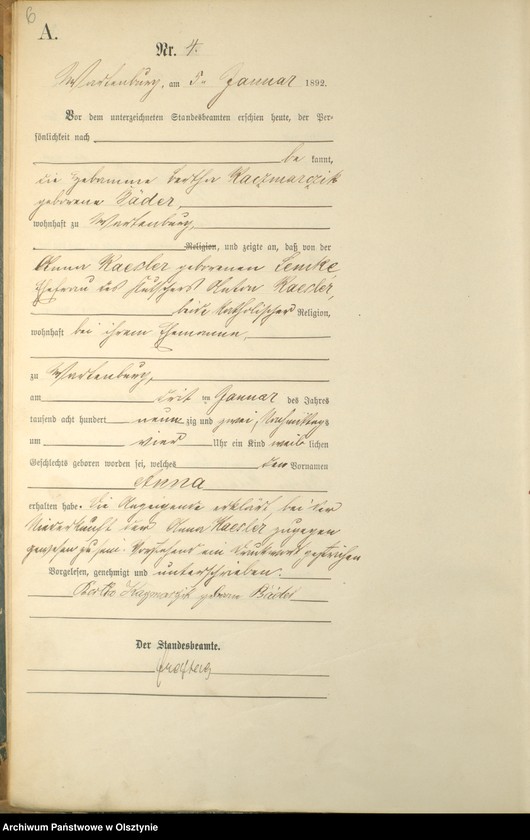 6
A.
Nr. 4.
Wartenburg, am 5. Januar 1892.
Vor dem unterzeichneten Standesbeamten erschien heute, der Per-
sönlichkeit nach
be kannt,
die Hebamme Bertha Kaczmarczik
geborene Bäder,
wohnhaft zu Wartenburg,
Religion, und zeigte an, daß von der
Anna Kaesler geborenen Lemke,
Ehefrau des Kutschers Anton Kaesler,
beide katholischer Religion,
wohnhaft bei ihrem Ehemanne,
zu Wartenburg,
am drit en Januar des Jahres
tausend acht hundert neun zig und zwei, Nachmittags
um vier Uhr ein Kind weib lichen
Geschlechts geboren worden sei, welches den Vornamen
Anna
erhalten habe. Die Anzeigende erklärt, bei der
Niederkunft der Anna Kaesler zugegen
gewesen zu sein. Vorstehend ein Druckwort gestrichen
Vorgelesen, genehmigt und unterschrieben.
geborne Bäder
Der Standesbeamte.
Archiwum Państwowe w Olsztynie